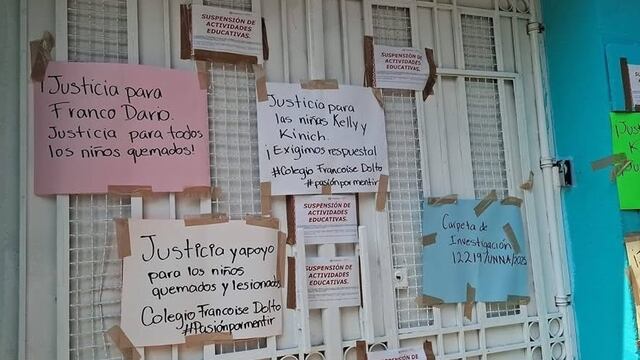 SUSPENSIÓN DE
ACTIVIDADES
EDUCATIVAS.
SUSPENSIÓN DE
ACTIVIDADES
EDUCATIVAS.
¡Justicia para
Franco Dario.
Justicia para todos
los niños quemados!
Justicia para
las niñas Kelly y
Kinich.
¡Exigimos respuesta!
#Colegio Francoise Dolto
#pasiónpormentir
SUSPENSIÓN DE
ACTIVIDADES
EDUCATIVAS.
Carpeta de
Investigación
12219/UNNA/2025
Justicia y apoyo
para los niños
quemados y lesionados
Colegio Francoise Dolto
#Pasiónpormentir
SUSPENSIÓN DE
ACTIVIDADES
EDUCATIVAS.
SUSPENSIÓN DE